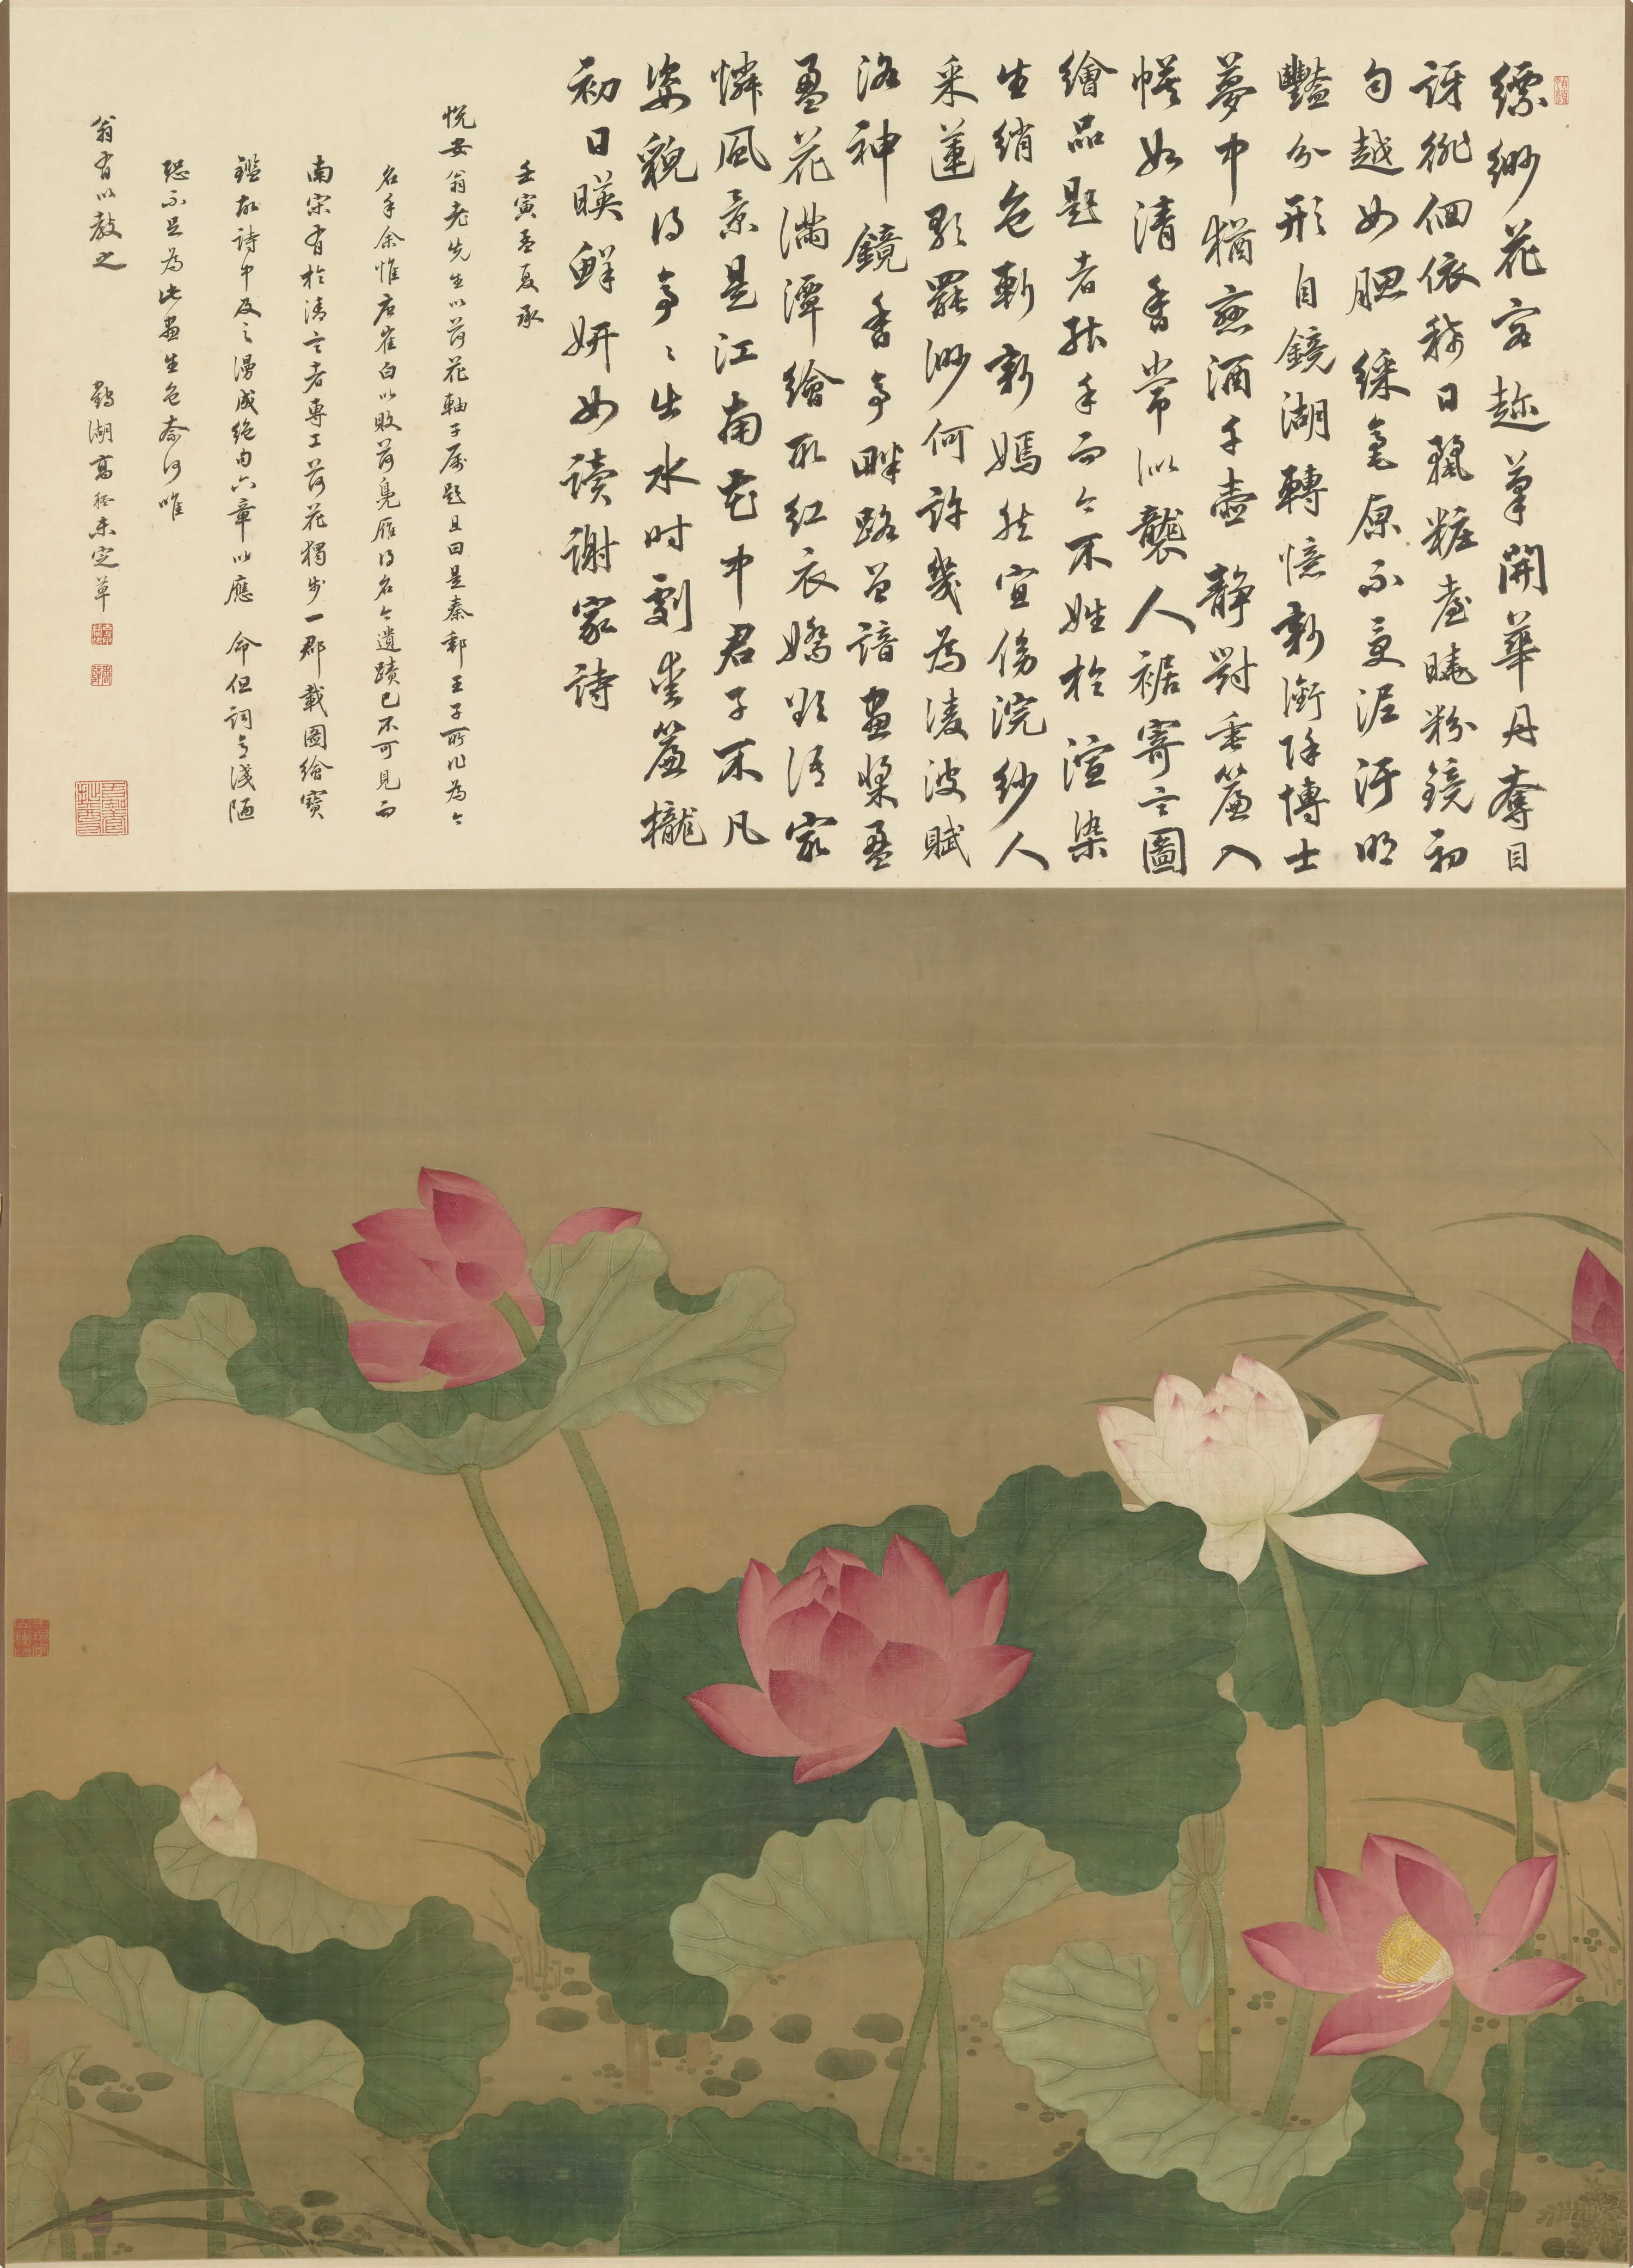 縹緲花容趁筆開華丹奪目
訝徘徊依稀日曬粧臺曉粉鏡初
勻越女腮 綵毫原不受泥汙明
豔分形自鏡湖轉憶新銜陸博士
夢中猶惹酒千壺 靜對垂簾入
幙如清香常似襲人裾寄言圖
繪品題者秖手而今不姓於渲染
生綃色斬新嫣然宜傍浣紗人
采蓮歌罷渺何許幾為凌波賦
洛神 鏡香亭畔路曾諳畫槳盈
盈花滿潭繪取紅衣嬌欲語家
憐風景是江南 花中君子不凡
姿貌得亭亭出水時劃坐簾櫳
初日暎鮮妍如讀謝家詩
壬寅孟夏承
悅安翁老先生以荷花軸子屬題且曰是秦郵王子所作為今
名手余惟唐崔白以敗荷鳧雁得名今遺蹟已不可見而
南宋有於清言者專工荷花獨步一郡載圖繪寶
鑑故詩中及之漫成絕句六章以應 命但詞句淺陋
恐不足為此畫生色奈何唯
翁有以教之
鸛湖高 未定草